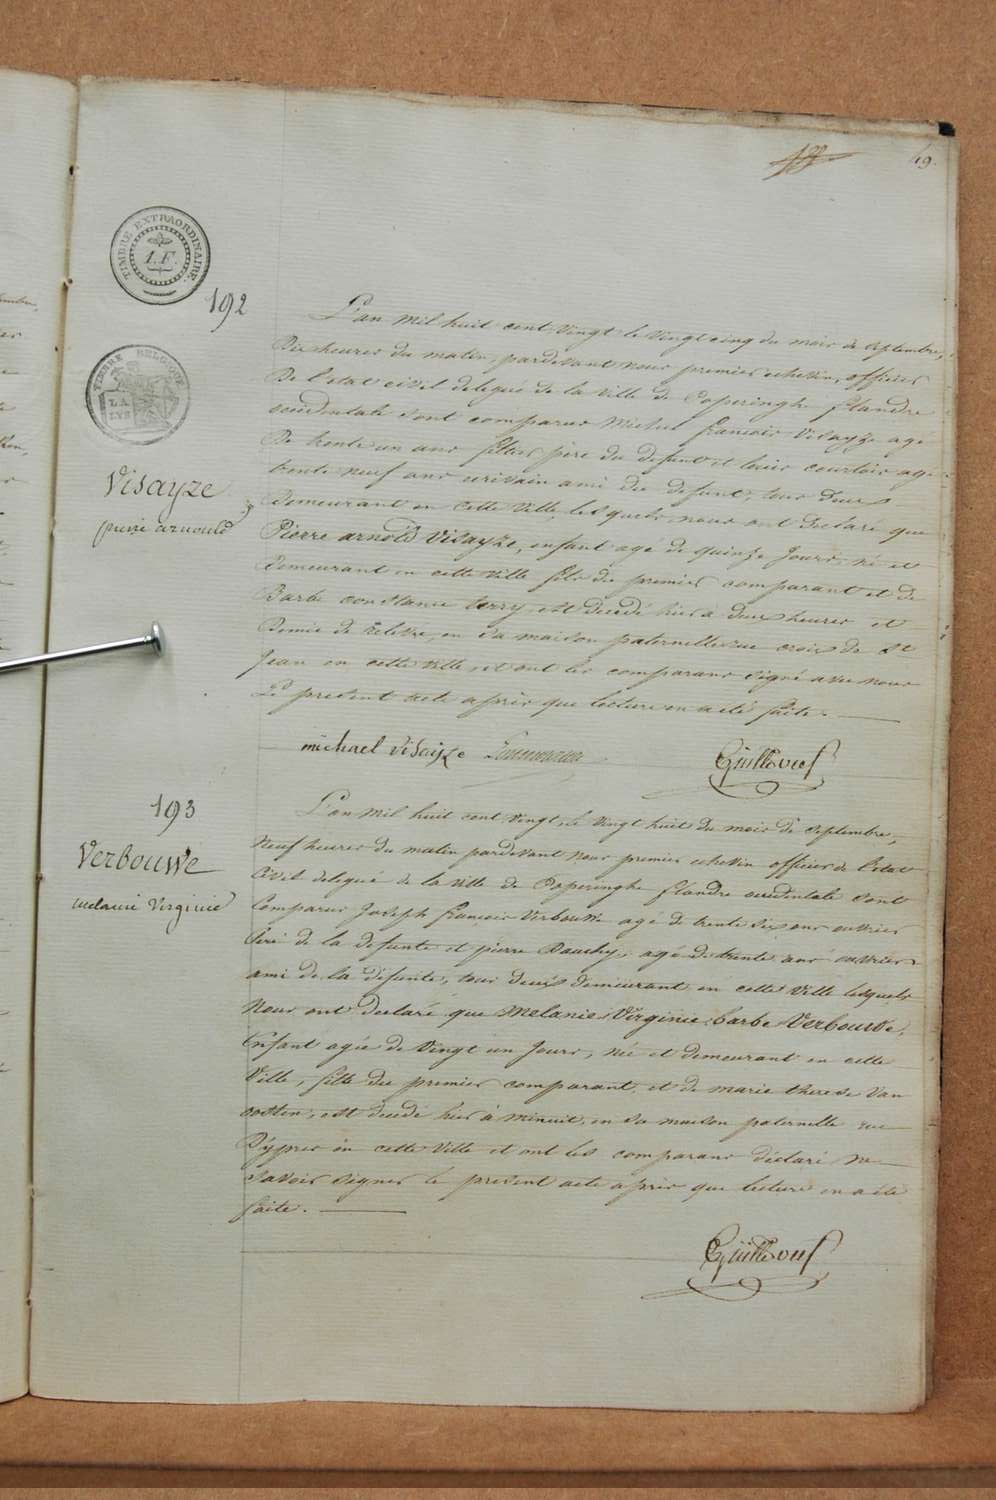 49.
TIMBRE EXTRAORDINAIRE.
1.F.
192
TIMBRE BELGIQUE
LA
LYS
Visayze
pierre arnould
L'an mil huit cent vingt le vingt cinq du mois de septembre,
Dix heures du matin, pardevant nous premier echevin, officier
De l'etat civil delegué de la ville de Poperinghe flandre
occidentale sont comparus Michel françois Visayze agé
De trente un ans père du defunt et courtois agé
trente neuf ans ecrivain ami du defunt, tous deux
Demeurant en cette ville, lesquels nous ont declaré que
Pierre arnold Visayze, enfant agé de quinze jours, né et
Demeurant en cette ville fils du premier comparant et de
Barbe constance terry, est decedé hier à deux heures et
Demie de relevée, en sa maison paternelle rue croix de St
Jean en cette ville, et ont les comparans signé avec nous
Le present acte après que lecture en a été faite.
michael visayze Guillebouf
193
Verbouwe
melanie Virginie
L'an mil huit cent vingt, le vingt huit du mois de septembre,
Neuf heures du matin pardevant nous premier echevin officier de l'etat
Civil delegué de la ville de Poperinghe flandre occidentale sont
Comparus Joseph françois Verbouwe agé de trente six ans ouvrier
Père de la defunte et pierre Dauchy, agé de trente ans ouvrier
ami de la defunte, tous deux demeurant en cette Ville lesquels
Nous ont declaré que Melanie Virginie barbe Verbouwe,
Enfant agée de Vingt un Jours, née et demeurant en cette
Ville, fille du premier comparant, et de marie therese Van
oosten, est decedé hier à minuit, en sa maison paternelle rue
D'ypres en cette Ville et ont les comparans déclaré ne
Savoir signer le present acte après que lecture en a été
faite.
Guillebouf